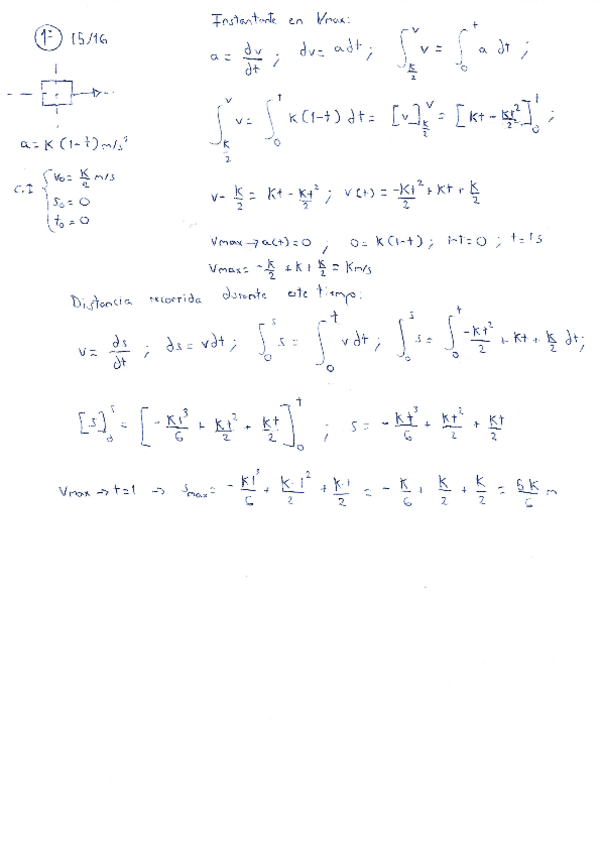 1º 15/16
Instantante en Vmax:
a = dv/dt ; dv = adt ; ∫_{K/2}^{v} v = ∫_0^t a dt ;
a = K (1-t) m/s²
C.I { v₀ = K/2 m/s
s₀ = 0
t₀ = 0
∫_{K/2}^{v} v = ∫_0^t K(1-t) dt = [v]_{K/2}^{v} = [Kt - Kt²/2]_0^t ;
v - K/2 = Kt - Kt²/2 ; v(t) = -Kt²/2 + Kt + K/2
Vmax → a(t) = 0 , 0 = K(1-t) ; 1-t = 0 ; t = 1s
Vmax = -K/2 + K + K/2 = K m/s
Distancia recorrida durante este tiempo:
v = ds/dt ; ds = vdt ; ∫_0^s s = ∫_0^t v dt ; ∫_0^s s = ∫_0^t -Kt²/2 + Kt + K/2 dt ;
[s]_0^s = [-Kt³/6 + Kt²/2 + Kt/2]_0^t ; s = -Kt³/6 + Kt²/2 + Kt/2
Vmax → t=1 → Smax = -K1³/6 + K·1²/2 + K·1/2 = -K/6 + K/2 + K/2 = 5K/6 m